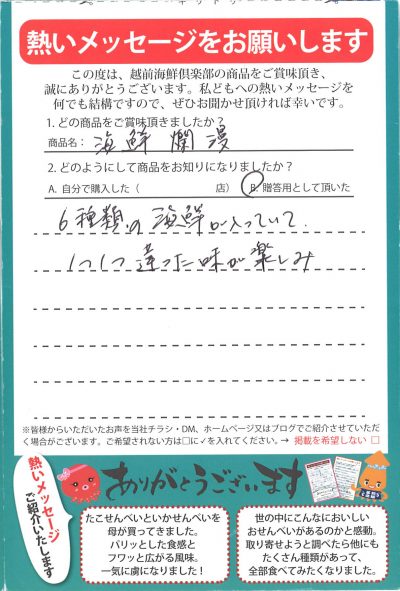 熱いメッセージをお願いします
この度は、越前海鮮倶楽部の商品をご賞味頂き、
誠にありがとうございます。私どもへの熱いメッセージを
何でも結構ですので、ぜひお聞かせ頂ければ幸いです。
1. どの商品をご賞味頂きましたか？
商品名： 海鮮爛漫
2. どのようにして商品をお知りになりましたか？
A. 自分で購入した（ 店） B. 贈答用として頂いた
6種類の海鮮が入っていて
1つ1つ違った味が楽しみ
※皆様からいただいたお声を当社チラシ・DM、ホームページ又はブログでご紹介させていただ
く場合がございます。ご希望されない方は□に✓を入れてください。→ 掲載を希望しない □
熱いメッセージ
ご紹介いたします
ありがとうございます
たこせんべいといかせんべいを
母が買ってきました。
パリッとした食感と
フワッと広がる風味。
一気に虜になりました！
世の中にこんなにおいしい
おせんべいがあるのかと感動。
取り寄せようと調べたら他にも
たくさん種類があって、
全部食べてみたくなりました。